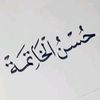 حُسْنُ الْخَاتِمَةْ